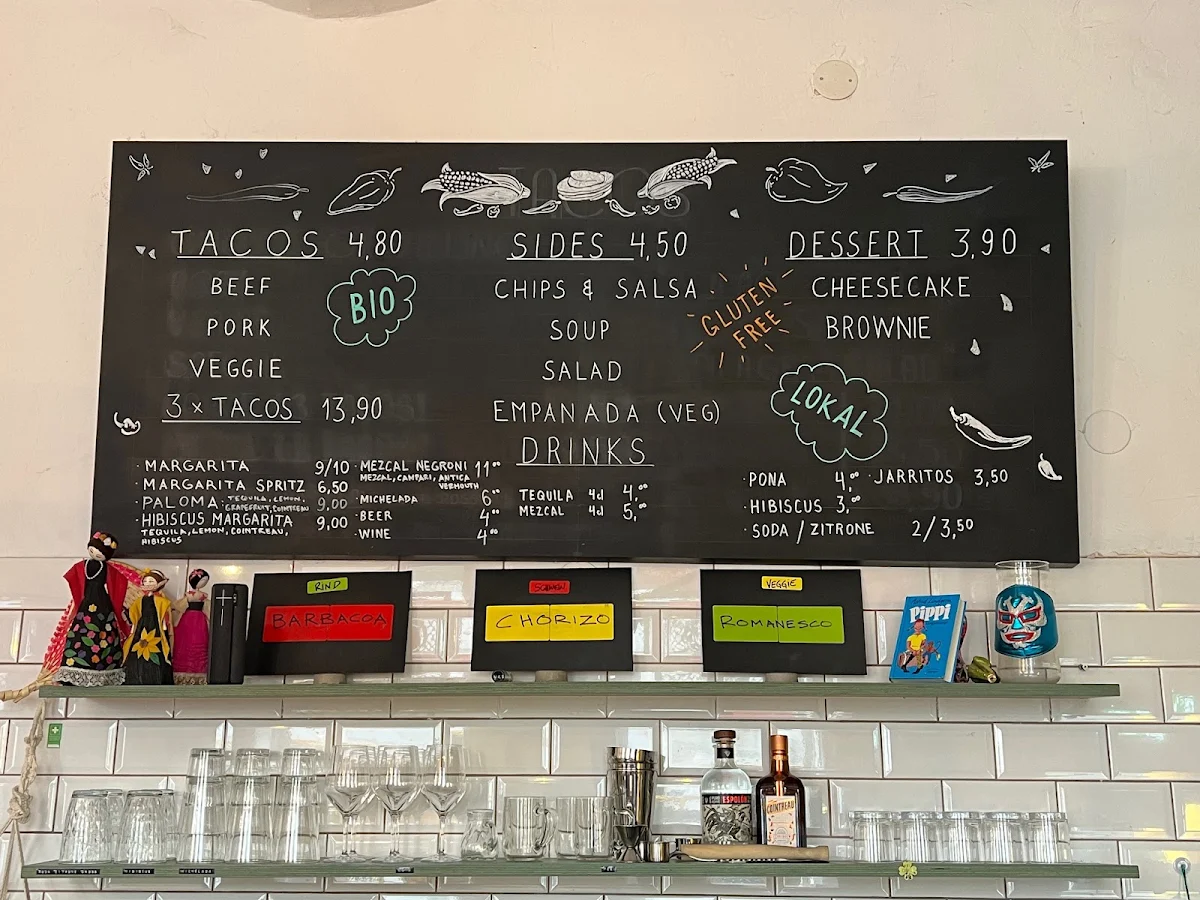 TACOS 4,80
BEEF
BIO
PORK
VEGGIE
3 x TACOS 13,90
SIDES 4,50
CHIPS & SALSA
SOUP
SALAD
EMPANADA (VEG)
GLUTEN
FREE
DESSERT 3,90
CHEESECAKE
BROWNIE
LOKAL
DRINKS
· MARGARITA 9/10
· MARGARITA SPRITZ 6,50
· PALOMA · TEQUILA, LEMON, 9,00
GRAPEFRUIT, COINTREAU
· HIBISCUS MARGARITA 9,00
TEQUILA, LEMON, COINTREAU,
HIBISCUS
· MEZCAL NEGRONI 11,00
MEZCAL, CAMPARI, ANTICA
VERMOUTH
· MICHELADA 6,00
· BEER 4,00
· WINE 4,00
TEQUILA 4cl 4,00
MEZCAL 4cl 5,00
· PONA 4,00
· HIBISCUS 3,00
· SODA / ZITRONE 2/3,50
· JARRITOS 3,50
RIND
BARBACOA
CHORIZO
VEGGIE
ROMANESCO
Pippi
ESPOLÒN
COINTREAU